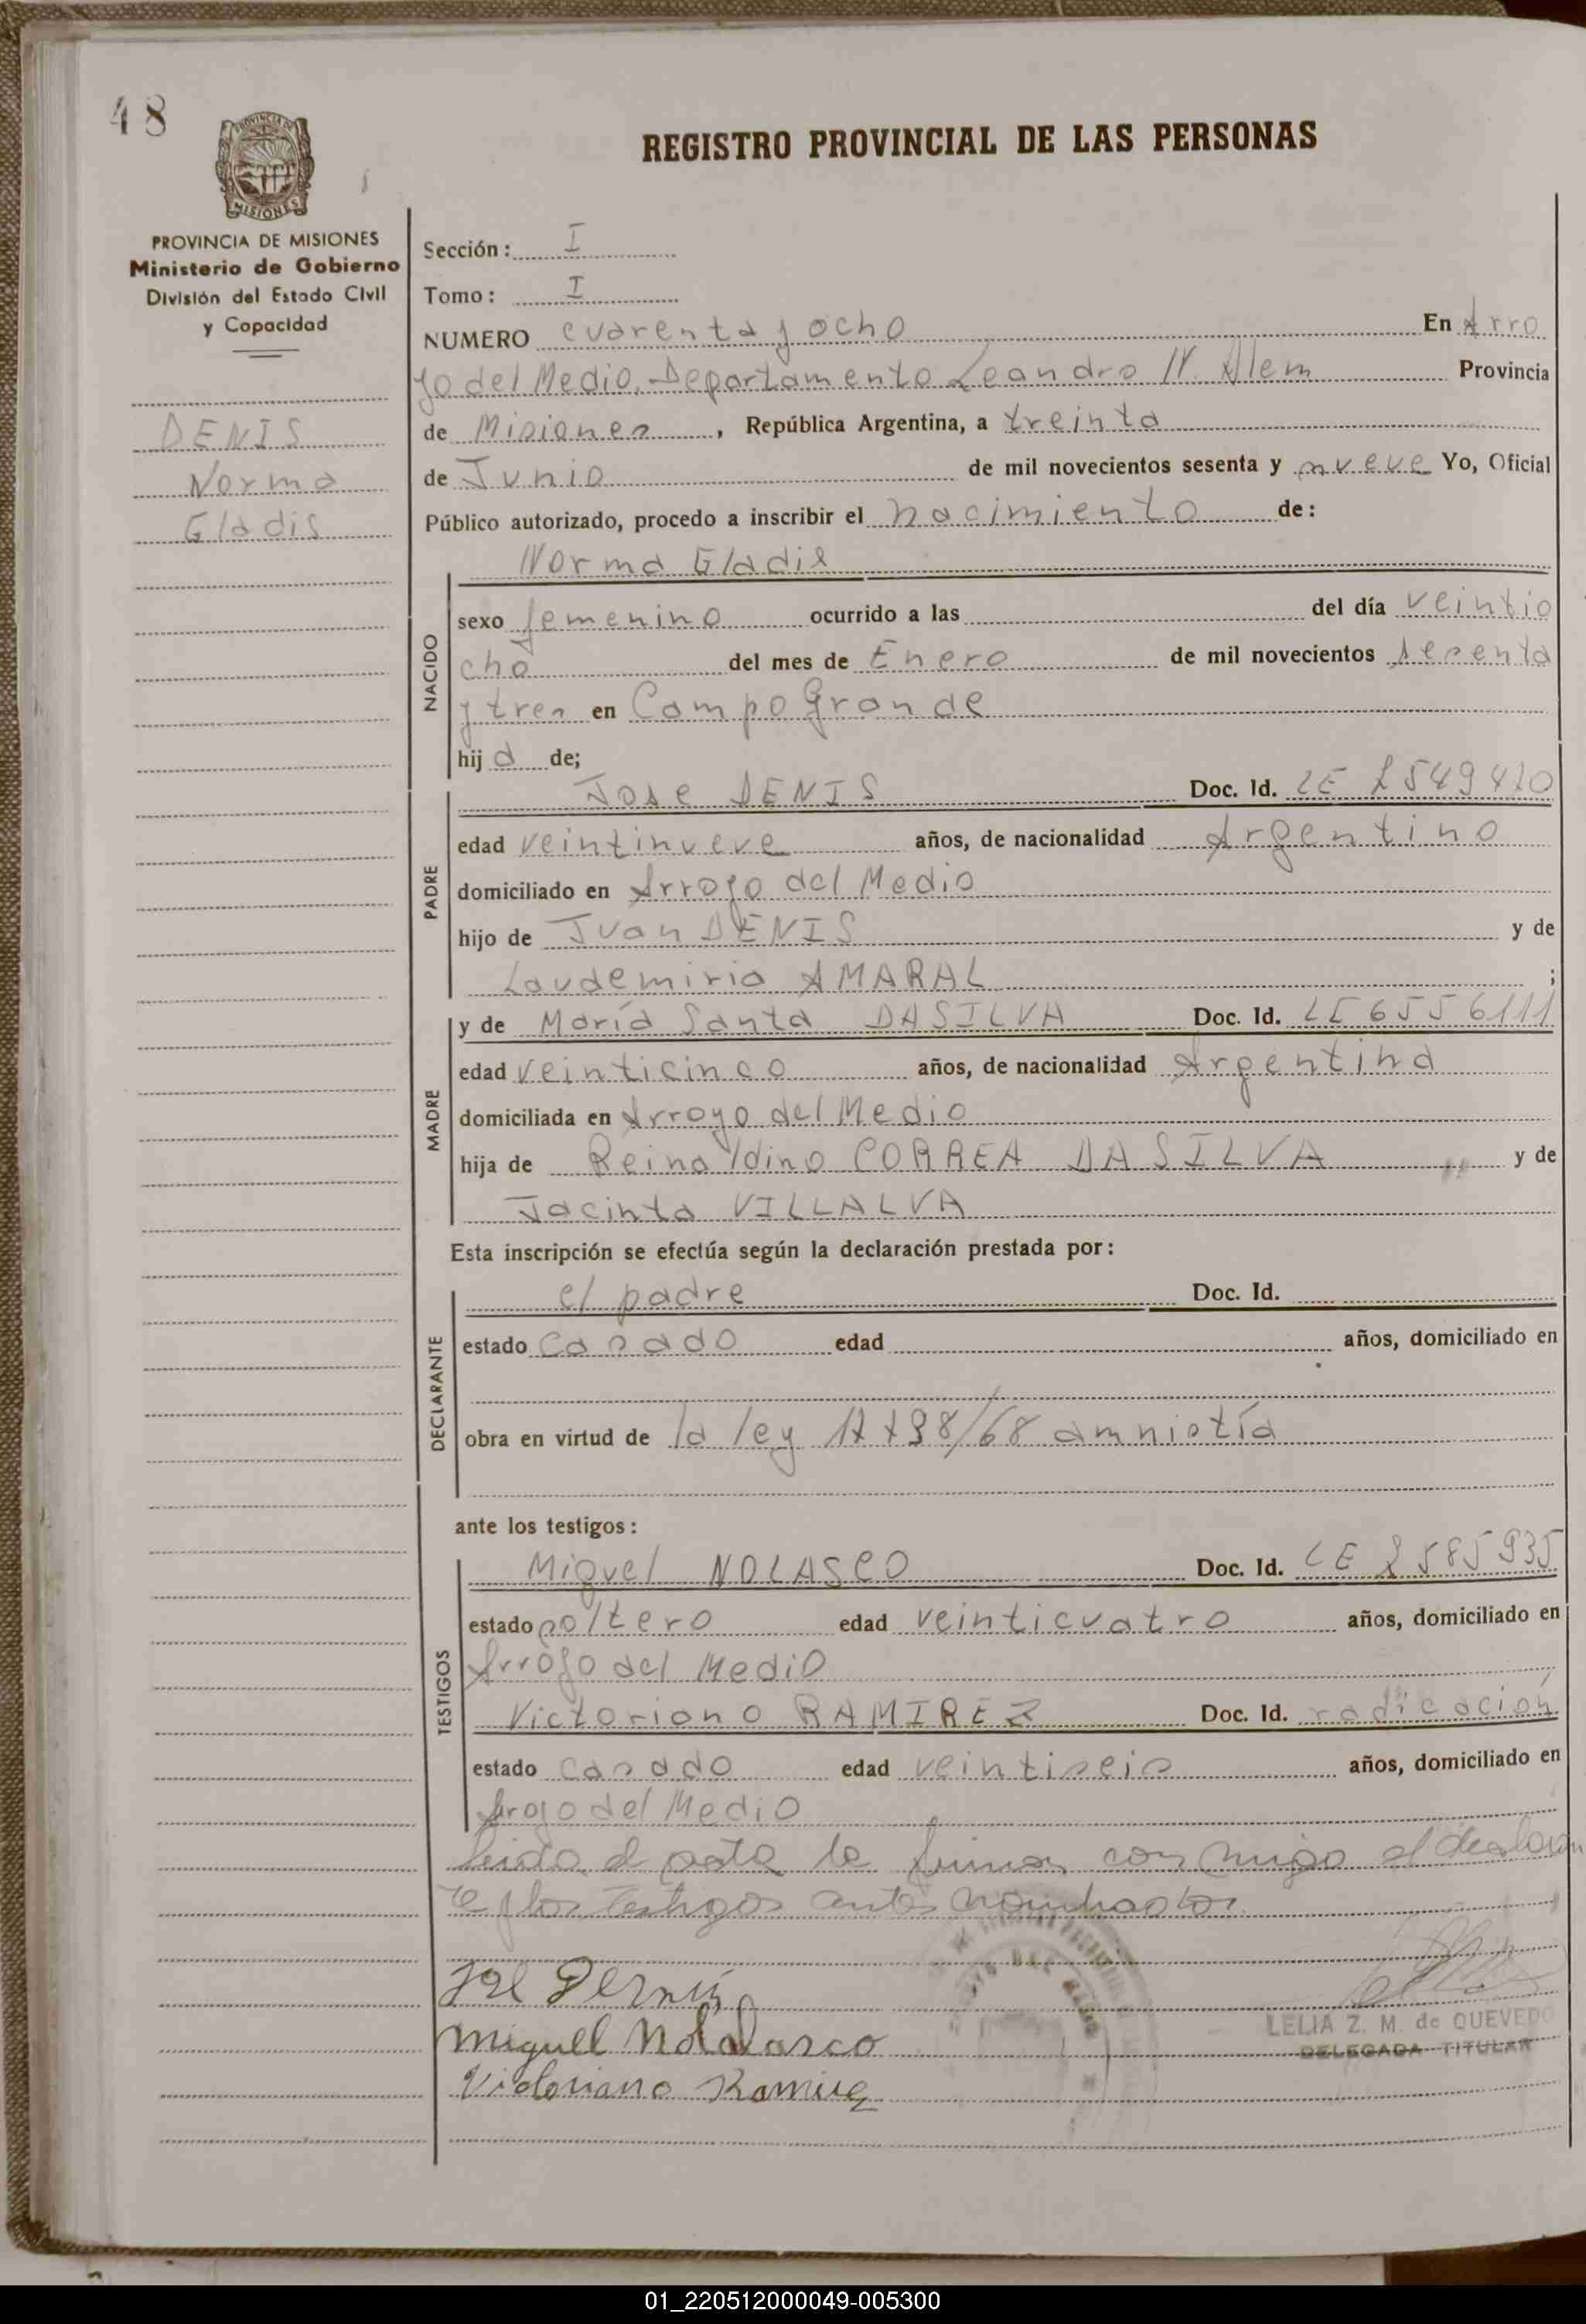 48
PROVINCIA DE MISIONES
Ministerio de Gobierno
División del Estado Civil
y Capacidad
DENIS
Norma
Gladis
REGISTRO PROVINCIAL DE LAS PERSONAS
Sección: I
Tomo: I
NUMERO cuarenta y ocho En Arro
yo del Medio, Departamento Leandro N. Alem Provincia
de Misiones, República Argentina, a treinta
de Junio de mil novecientos sesenta y nueve Yo, Oficial
Público autorizado, procedo a inscribir el nacimiento de:
Norma Gladis
NACIDO
sexo femenino ocurrido a las del día veintio
cho del mes de Enero de mil novecientos sesenta
y tres en Campo Grande
hij a de;
PADRE
Jose DENIS Doc. Id. LE
edad veintinueve años, de nacionalidad Argentino
domiciliado en Arroyo del Medio
hijo de Juan DENIS y de
Laudemiria AMARAL ;
MADRE
y de María Santa DASILVA Doc. Id. LE 6556111
edad veinticinco años, de nacionalidad Argentina
domiciliada en Arroyo del Medio
hija de Reinaldino CORREA DASILVA y de
Jacinta VILLALVA
Esta inscripción se efectúa según la declaración prestada por:
DECLARANTE
el padre Doc. Id.
estado Casado edad años, domiciliado en
obra en virtud de la ley /68 amnistía
ante los testigos:
TESTIGOS
Miguel NOLASCO Doc. Id. LE
estado soltero edad veinticuatro años, domiciliado en
Arroyo del Medio
Victoriano RAMIREZ Doc. Id. radicación
estado casado edad veintiseis años, domiciliado en
Arroyo del Medio
leida el acta la firman con migo el declaran
te y los testigos antes nombrados
Miguel Nolalasco
Victoriano Ramirez
LELIA Z. M. de QUEVEDO
DELEGADA TITULAR
01_220512000049-005300